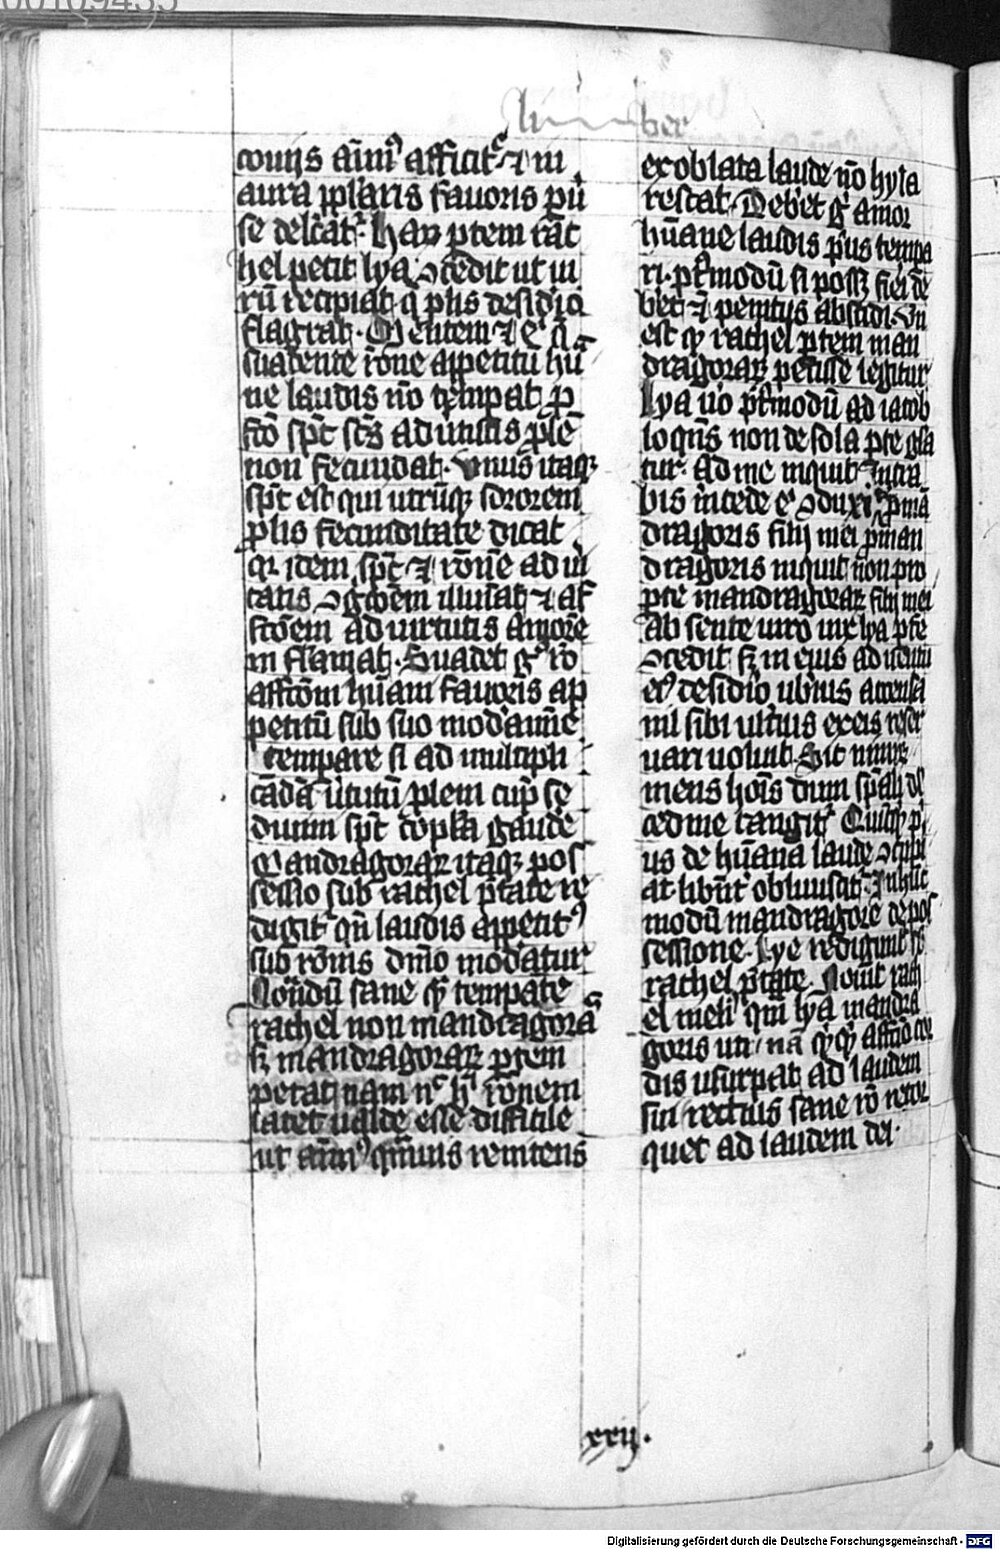 00109435
li ber
couijs aīmꝰ afficit᷑ ⁊ in
aura pplaris fauoris pū
se delc̄at᷑ Hāc ꝑtem rac
hel petit lya ꝯcedit ut ui
rū recipiat q̄ plis desid̓io
flagrat. Mentem ⁊ eꝰ q̄
suadente rōne appetitū hūᵃ
ne laudis nō temperat ꝑ
fc̄o sp̄c scs̄ ad utilis ꝓlē
non fecundat. Unus itaqꝫ
sp̄c est qui utrūqꝫ sororem
ꝓlis fecunditate dicat
qꝛ idem sp̄c ⁊ rōne ad ui
tatis ꝯgcōem illuīat ⁊ af
fcōem ad uirtutis amore
in flāmat. Suadet gͦ rō
affcōni hūani fauoris ap
petitū sub suo mod̓amīe
temꝑare si ad multipli
cādā ūtutū ꝓlem cupit se
diuini sp̄c cōpla gaude
Mandragoraꝝ itaqꝫ pos
sessio sub rachel ptāte re
digit᷑ qn̄ laudis appetitꝰ
sub rōnis dnīo mod̓atur
Nondū sane qꝫ temꝑate
rachel non mandragoraˢ
sꝫ mandragoraꝝ ꝑtem
petat nam nᶜ hͨ rōnem
latet ualde esse difficile
ut aīmꝰ qͣmuis renitens
ex oblata laude nō hyla
rescat. Debet gͦ amor
hūane laudis pͥus tempa
ri. pꝰtmodū si possꝫ fieri de
bet ⁊ penitus abscidi. Vn̄
est qꝫ rachel ꝑtem man
dragoraꝝ petisse legitur
Lya uͦo pꝰtmodū ad iacob
loqn̄s non de sola ꝑte gla
tur. Ad me inquit intra
bis m̄cede eͥ ꝯduxi te ꝓ mā
dragoris filij mei ꝓ man
dragoris inquit non pro
ꝑte mandragoraꝝ filij mei
Absente uiro lya ꝑtē
ꝯcedit sꝫ in eius aduentu
eiꝰ desid̓io ub̓ius accensa
nil sibi ult̓ius ex eis reser
uari uoluit. Sic nimirū
mens hoīs dum sp̄ali dul
cedine tangit᷑ Quicqͥd pͥ
us de hūana laude ꝯcupi
at lib̓nt᷑ obliuiscit᷑ In hūc
modū mandragore de pos
sessione. Lye rediguntur
rachel ptāte. Nouit rach
el meliꝰ qͣm lya mandra
goris uti nā qͥcqͥd affcō cor
dis usurpat ad laudem
sui rectius sane rō retor
quet ad laudem dei.
xxij.
Digitalisierung gefördert durch die Deutsche Forschungsgemeinschaft - DFG